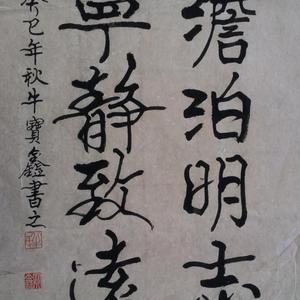 澹泊明志
寧靜致遠
癸巳年秋牛寶鑫書之